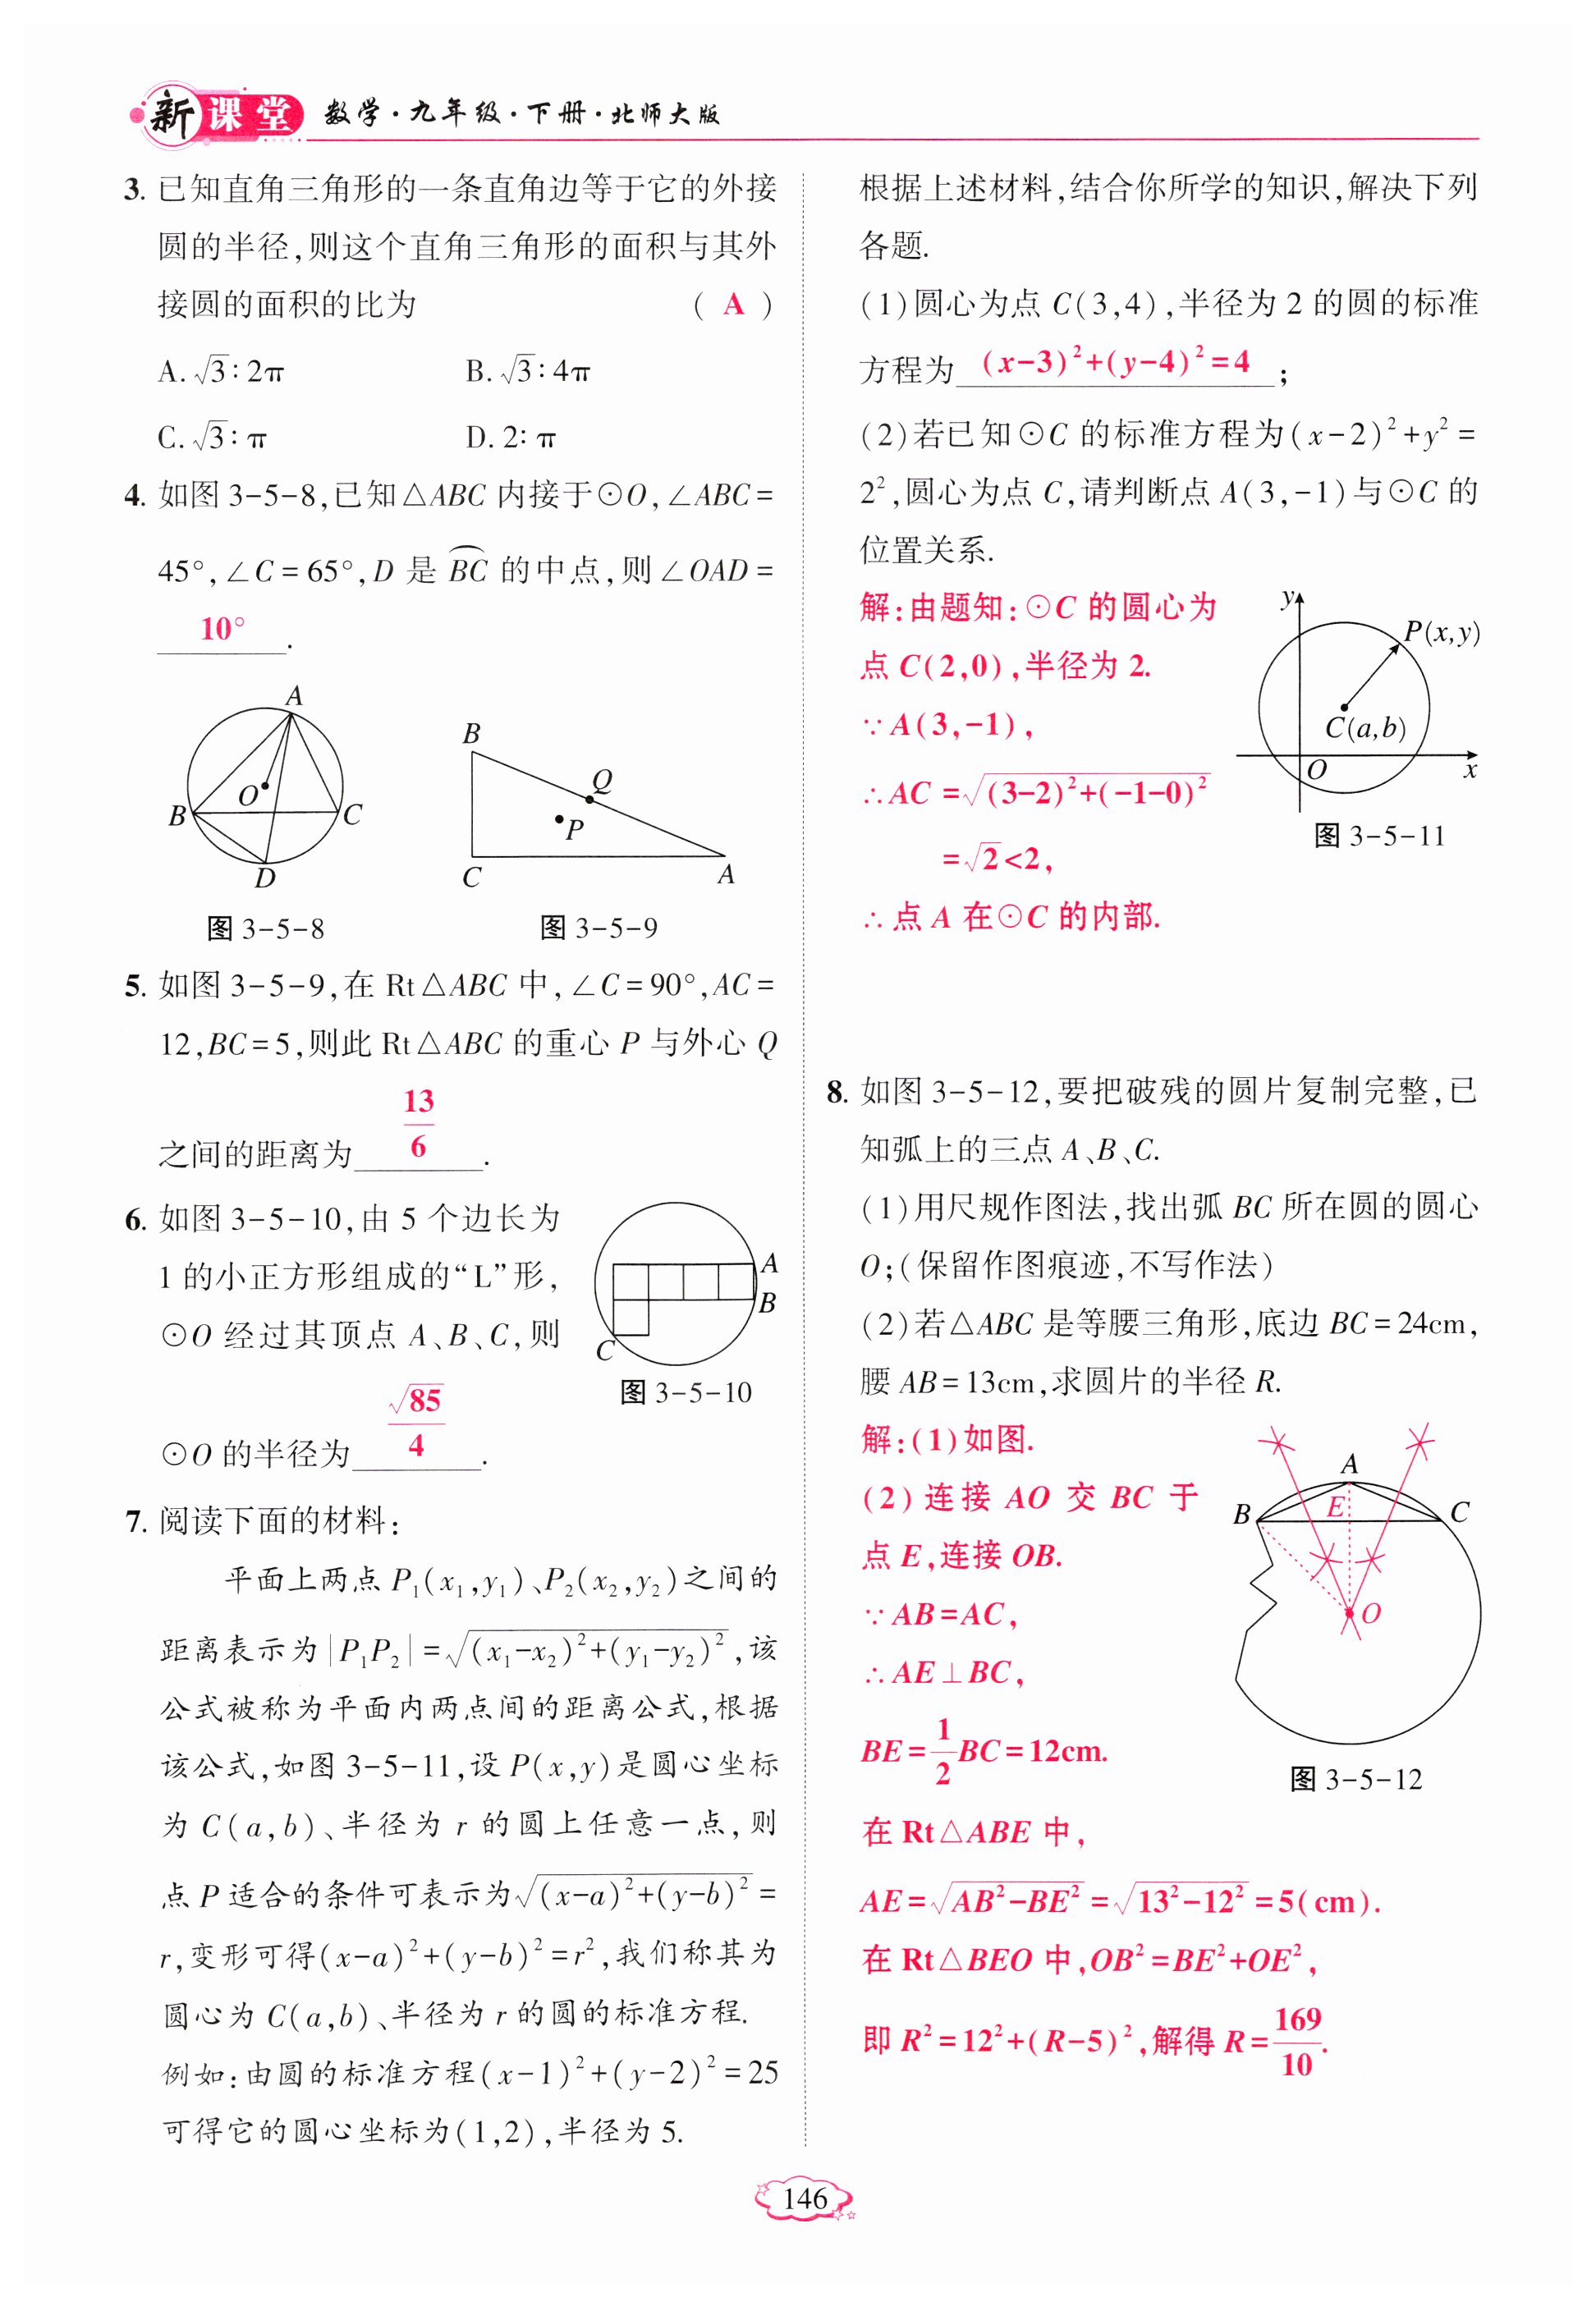 新课堂 数学·九年级·下册·北师大版
3. 已知直角三角形的一条直角边等于它的外接
圆的半径,则这个直角三角形的面积与其外
接圆的面积的比为 ( A )
A. √3∶2π B. √3∶4π
C. √3∶π D. 2∶π
4. 如图 3-5-8,已知△ABC 内接于⊙O,∠ABC=
45°,∠C=65°,D 是 B͡C 的中点,则∠OAD=
10°.
A
O
B
C
D
图 3-5-8
B
Q
P
C
A
图 3-5-9
5. 如图 3-5-9,在 Rt△ABC 中,∠C=90°,AC=
12,BC=5,则此 Rt△ABC 的重心 P 与外心 Q
之间的距离为 13/6.
6. 如图 3-5-10,由 5 个边长为
1 的小正方形组成的“L”形,
⊙O 经过其顶点 A、B、C,则
⊙O 的半径为 √85/4.
A
B
C
图 3-5-10
7. 阅读下面的材料:
平面上两点 P₁(x₁,y₁)、P₂(x₂,y₂)之间的
距离表示为|P₁P₂|=√((x₁-x₂)²+(y₁-y₂)²),该
公式被称为平面内两点间的距离公式,根据
该公式,如图 3-5-11,设 P(x,y)是圆心坐标
为 C(a,b)、半径为 r 的圆上任意一点,则
点 P 适合的条件可表示为√((x-a)²+(y-b)²)=
r,变形可得(x-a)²+(y-b)²=r²,我们称其为
圆心为 C(a,b)、半径为 r 的圆的标准方程.
例如:由圆的标准方程(x-1)²+(y-2)²=25
可得它的圆心坐标为(1,2),半径为 5.
根据上述材料,结合你所学的知识,解决下列
各题.
(1)圆心为点 C(3,4),半径为 2 的圆的标准
方程为 (x-3)²+(y-4)²=4;
(2)若已知⊙C 的标准方程为(x-2)²+y²=
2²,圆心为点 C,请判断点 A(3,-1)与⊙C 的
位置关系.
解:由题知:⊙C 的圆心为
点 C(2,0),半径为 2.
∵A(3,-1),
∴AC=√((3-2)²+(-1-0)²)
=√2<2,
∴点 A 在⊙C 的内部.
y
P(x,y)
C(a,b)
O
x
图 3-5-11
8. 如图 3-5-12,要把破残的圆片复制完整,已
知弧上的三点 A、B、C.
(1)用尺规作图法,找出弧 BC 所在圆的圆心
O;(保留作图痕迹,不写作法)
(2)若△ABC 是等腰三角形,底边 BC=24cm,
腰 AB=13cm,求圆片的半径 R.
解:(1)如图.
(2)连接 AO 交 BC 于
点 E,连接 OB.
∵AB=AC,
∴AE⊥BC,
BE=1/2BC=12cm.
在 Rt△ABE 中,
AE=√(AB²-BE²)=√(13²-12²)=5(cm).
在 Rt△BEO 中,OB²=BE²+OE²,
即 R²=12²+(R-5)²,解得 R=169/10.
A
B
E
C
O
图 3-5-12
146